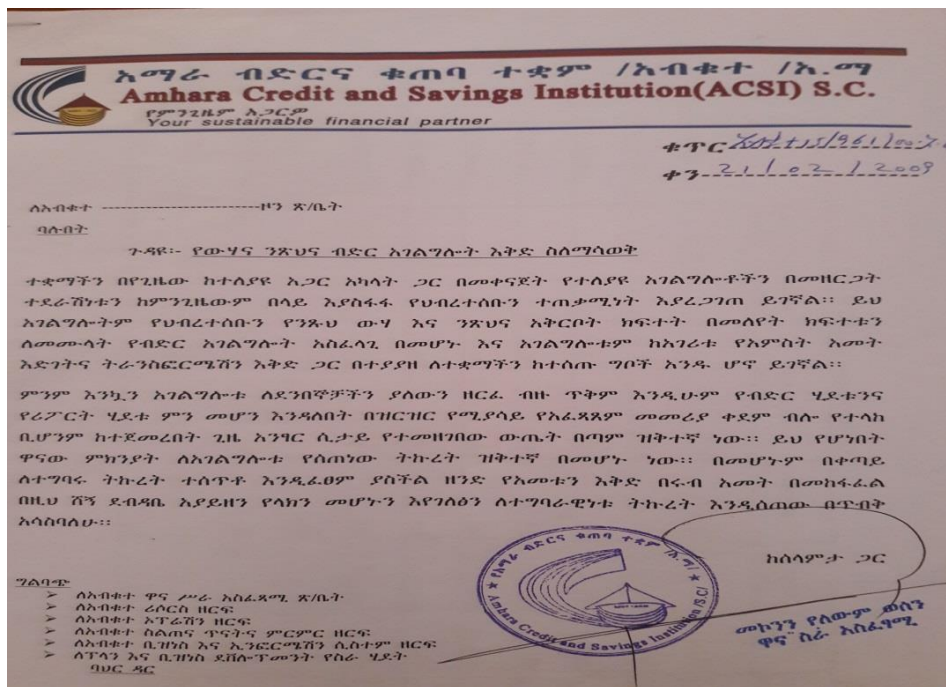 አማራ ብድርና ቁጠባ ተቋም /አብቁተ /አ.ማ
Amhara Credit and Savings Institution(ACSI) S.C.
የምንጊዜም አጋርዎ
Your sustainable financial partner
ቁጥር
ቀን 21/02/2009
ለአብቁተ -------------------------ዞን ጽ/ቤት
ባሉበት
ጉዳዩ፡- የውሃና ንጽህና ብድር አገልግሎት እቅድ ስለማሳወቅ
ተቋማችን በየጊዜው ከተለያዩ አጋር አካላት ጋር በመቀናጀት የተለያዩ አገልግሎቶችን በመዘርጋት
ተደራሽነቱን ከምንጊዜውም በላይ እያስፋፋ የህብረተሰቡን ተጠቃሚነት እያረጋገጠ ይገኛል። ይህ
አገልግሎትም የህብረተሰቡን የንጹህ ውሃ እና ንጽህና አቅርቦት ክፍተት በመለየት ክፍተቱን
ለመሙላት የብድር አገልግሎት አስፈላጊ በመሆኑ እና አገልግሎቱም ከአገሪቱ የአምስት አመት
እድገትና ትራንስፎርሜሽን እቅድ ጋር በተያያዘ ለተቋማችን ከተሰጡ ግቦች አንዱ ሆኖ ይገኛል።
ምንም እንኳን አገልግሎቱ ለደንበኞቻችን ያለውን ዘርፈ ብዙ ጥቅም እንዲሁም የብድር ሂደቱንና
የሪፖርት ሂደቱ ምን መሆን እንዳለበት በዝርዝር የሚያሳይ የአፈጻጸም መመሪያ ቀደም ብሎ የተላከ
ቢሆንም ከተጀመረበት ጊዜ አንፃር ሲታይ የተመዘገበው ውጤት በጣም ዝቅተኛ ነው። ይህ የሆነበት
ዋናው ምክንያት ለአገልግሎቱ የሰጠነው ትኩረት ዝቅተኛ በመሆኑ ነው። በመሆኑም በቀጣይ
ለተግባሩ ትኩረት ተሰጥቶ እንዲፈፀም ያስችል ዘንድ የአመቱን እቅድ በሩብ አመት በመከፋፈል
በዚህ ሸኝ ደብዳቤ አያይዘን የላክን መሆኑን እየገለፅን ለተግባራዊነቱ ትኩረት እንዲሰጠው በጥብቅ
አሳስባለሁ።
ከሰላምታ ጋር
የአማራ ብድርና ቁጠባ ተቋም /አ.ማ/
Amhara Credit and Savings Institution /S.C/
መኮንን የለውም ወሰን
ዋና ስራ አስፈፃሚ
ግልባጭ
➢ ለአብቁተ ዋና ሥራ አስፈጻሚ ጽ/ቤት
➢ ለአብቁተ ሪሶርስ ዘርፍ
➢ ለአብቁተ ኦፕሬሽን ዘርፍ
➢ ለአብቁተ ስልጠና ጥናትና ምርምር ዘርፍ
➢ ለአብቁተ ቢዝነስ እና ኢንፎርሜሽን ሲስተም ዘርፍ
➢ ለፕላን እና ቢዝነስ ደቨሎፕመንት የስራ ሂደት
ባህር ዳር